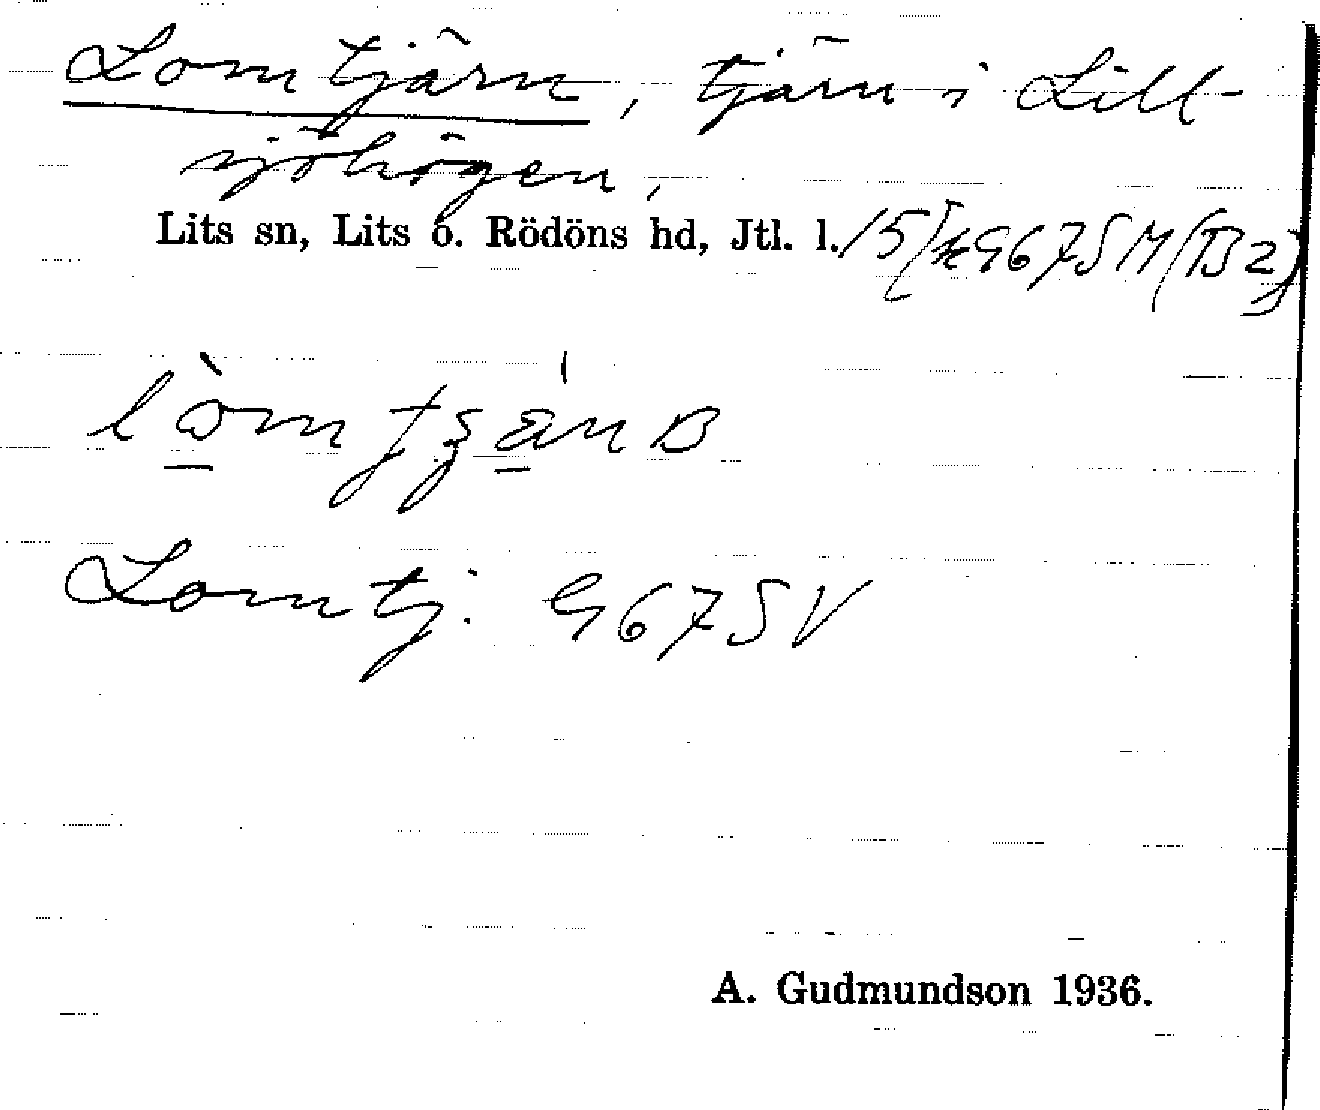 Lomtjärn, tjärn i Lill-
sjöhögen,
Lits sn, Lits o. Rödöns hd, Jtl. l. G67SM (B2)
Lomtj. G67SV
A. Gudmundson 1936.